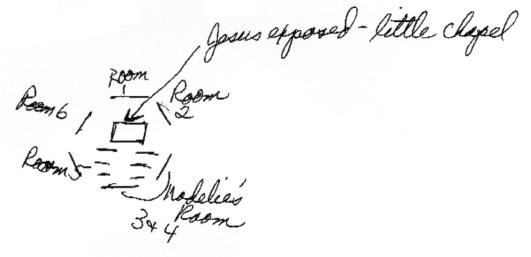 Jesus exposed - little chapel
Room
1
Room
2
Room 6
Room 5
Nodelie's
Room
3 & 4